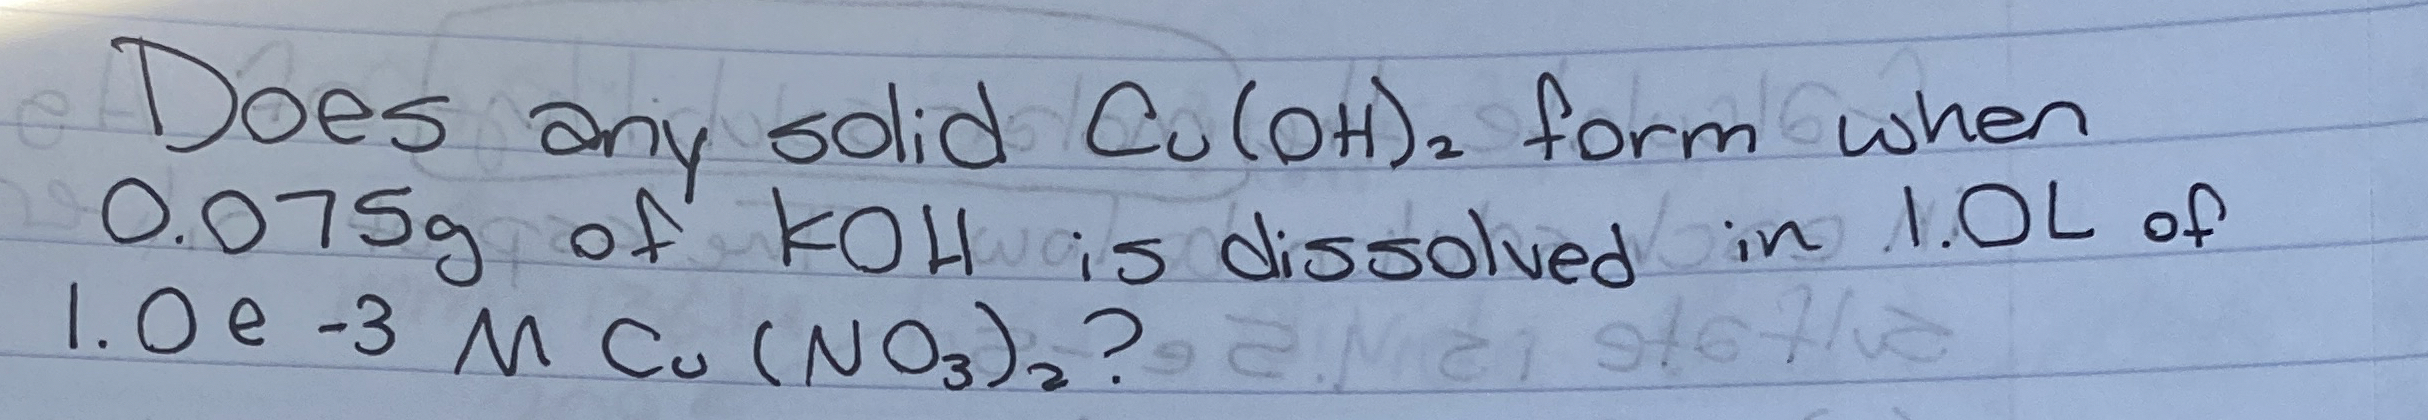 Does any solid Cu(OH)₂ form when
0.075g of KOH is dissolved in 1.0L of
1.0e-3 M Cu(NO₃)₂?